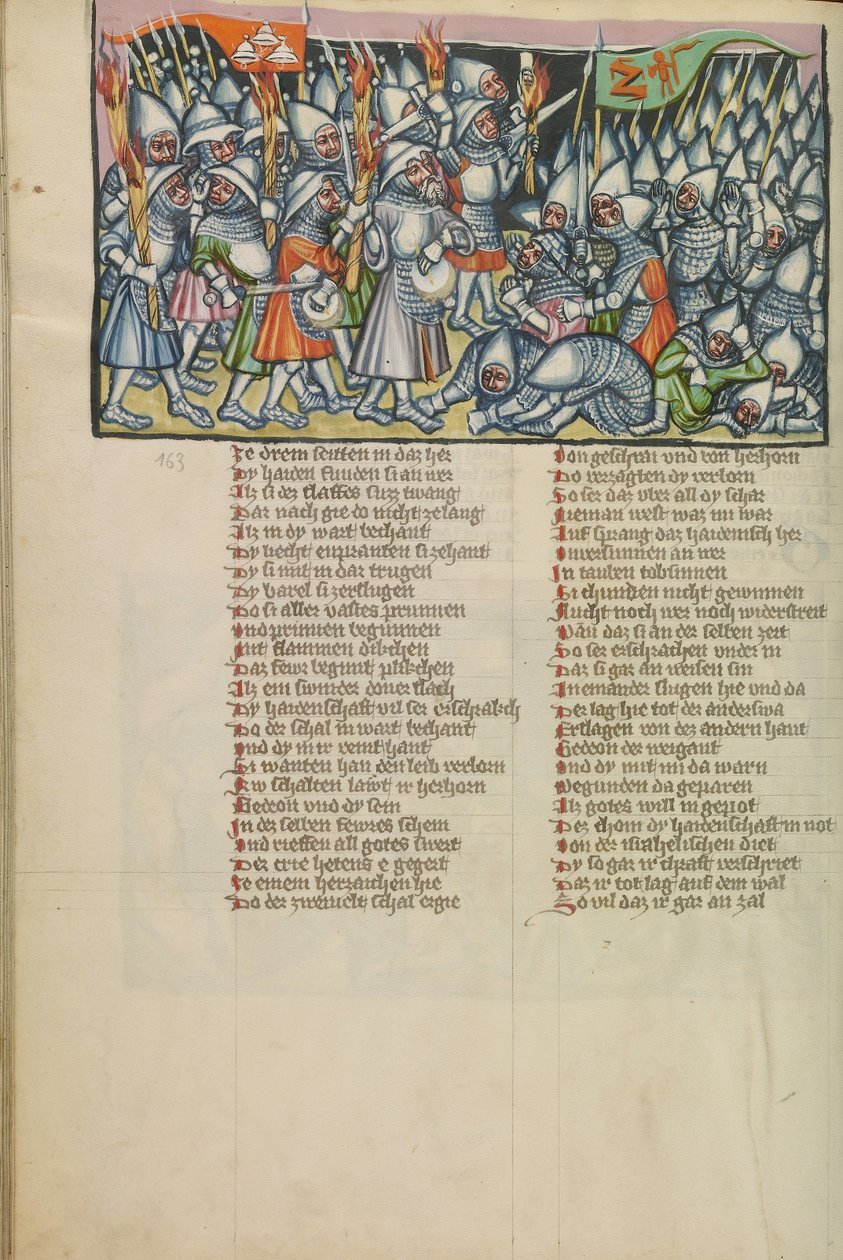 163
Ze drein seitten in daz her
Dy haiden funden si an wer
Alz si dez slaffes suzz twang
Dar nach gie do nicht ze lang
Alz in dy wart bechant
Dy liecht enpranten si zehant
Dy si mit in dar trugen
Dy varel si zerslugen
Do si aller vastes prunnen
Vnd prinnen begunnen
Mit flammen dikchen
Daz fewr begunt plikchen
Alz ein swinder doner slach
Dy haidenschaft vil ser erschrakch
Do der schal in wart bechant
Vnd dy in ir veint hant
Si wanten han den leib verlorn
Nw schalten lawt ir herhorn
Gedeon vnd dy sein
In dez selben fewres schein
Vnd rieffen all gotes swert
Der crie hetens e gegert
Ze einem herzaichen hie
Do der zwevelt schal ergie
Von geschrai vnd von herhorn
Do verzagten dy verlorn
So ser daz vber all dy schar
Nieman west waz im war
Auf sprang daz haidenisch her
Vnversunnen an wer
In tauben tobsinnen
Si chunden nicht gewinnen
Flucht noch wer noch widerstreit
Wan daz si an der selben zeit
So ser erschrachen vnder in
Daz si gar an weisen sin
An einander slugen hie vnd da
Der lag hie tot der anderswa
Erslagen von dez andern hant
Gedeon der weigant
Vnd dy mit im da warn
Begunden da geparen
Alz gotes will in gepot
Dez chom dy haidenschaft in not
Von der israhelischen diet
Dy so gar ir chraft verschriet
Daz ir tot lag auf dem wal
So vil daz ir gar an zal